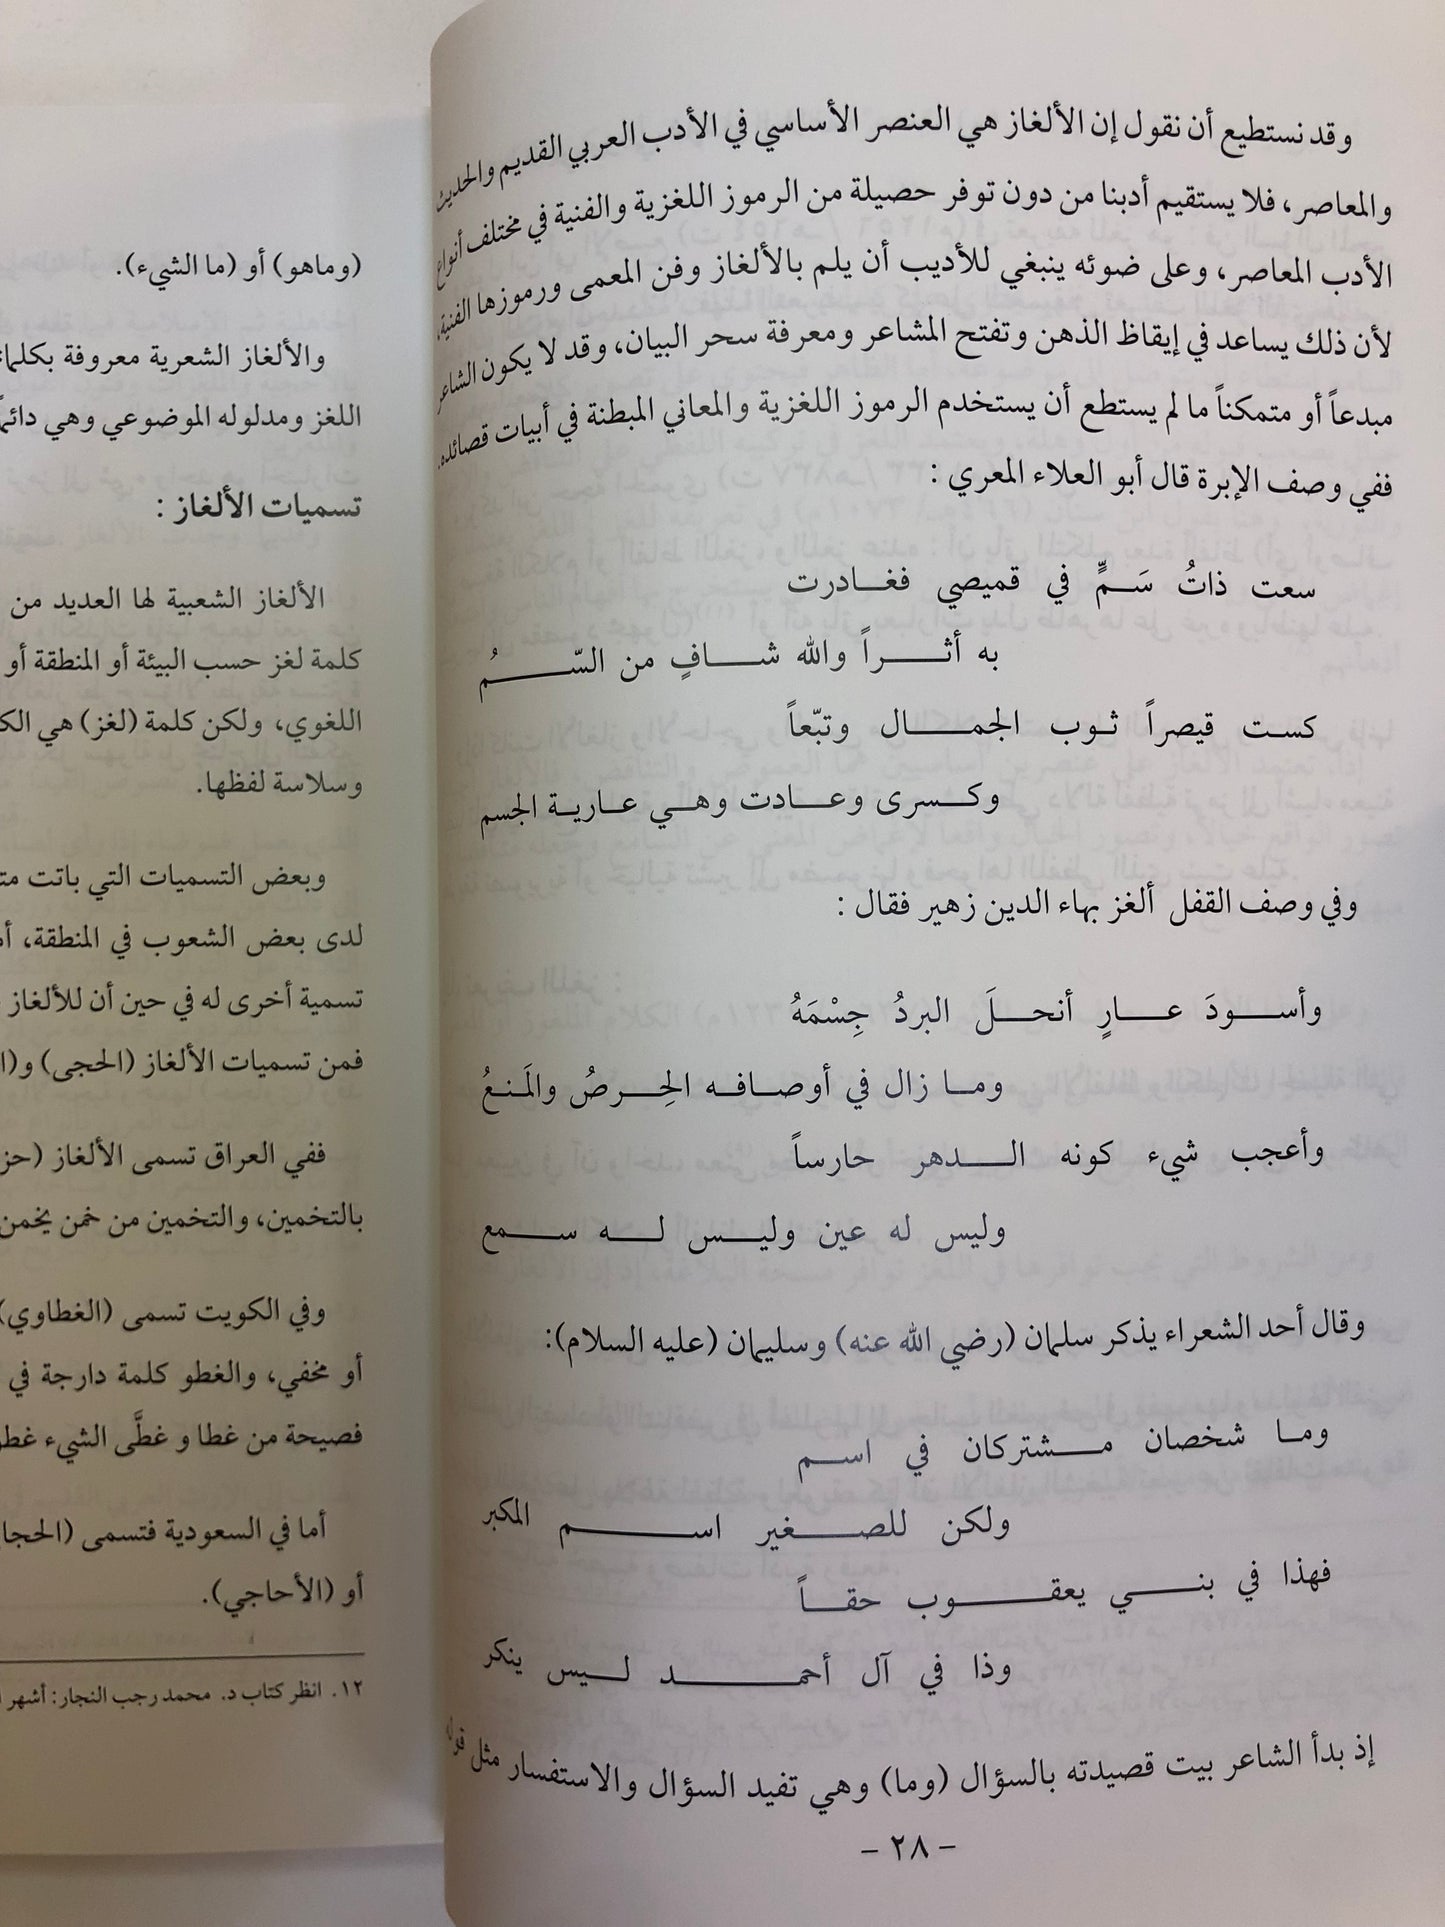 وقد نستطيع أن نقول إن الألغاز هي العنصر الأساسي في الأدب العربي القديم والحديث
والمعاصر، فلا يستقيم أدبنا من دون توفر حصيلة من الرموز اللغزية والفنية في مختلف أنواع
الأدب المعاصر، وعلى ضوئه ينبغي للأديب أن يلم بالألغاز وفن المعمى ورموزها الفنية،
لأن ذلك يساعد في إيقاظ الذهن وتفتح المشاعر ومعرفة سحر البيان، وقد لا يكون الشاعر
مبدعاً أو متمكناً ما لم يستطع أن يستخدم الرموز اللغزية والمعاني المبطنة في أبيات قصائده.
ففي وصف الإبرة قال أبو العلاء المعري :
سعت ذاتُ سَمٍّ في قميصي فغادرت
به أثراً والله شافٍ من السّمُ
كست قيصراً ثوب الجمال وتبّعاً
وكسرى وعادت وهي عارية الجسم
وفي وصف القفل ألغز بهاء الدين زهير فقال :
وأسودَ عارٍ أنحلَ البردُ جِسْمَهُ
وما زال في أوصافه الحِرصُ والمَنعُ
وأعجب شيء كونه الدهر حارساً
وليس له عين وليس له سمع
وقال أحد الشعراء يذكر سلمان (رضي الله عنه) وسليمان (عليه السلام):
وما شخصان مشتركان في اسم
ولكن للصغير اسم المكبر
فهذا في بني يعقوب حقاً
وذا في آل أحمد ليس ينكر
إذ بدأ الشاعر بيت قصيدته بالسؤال (وما) وهي تفيد السؤال والاستفسار مثل قوله
- ٢٨ -
(وماهو) أو (ما الشيء).
والألغاز الشعرية معروفة
اللغز ومدلوله الموضوعي وهي دائماً
تسميات الألغاز :
الألغاز الشعبية لها العديد من
كلمة لغز حسب البيئة أو المنطقة أو
اللغوي، ولكن كلمة (لغز) هي
وسلاسة لفظها.
وبعض التسميات التي باتت
لدى بعض الشعوب في المنطقة،
تسمية أخرى له في حين أن للألغاز
فمن تسميات الألغاز (الحجى)
ففي العراق تسمى الألغاز
بالتخمين، والتخمين من خمن يخمن
وفي الكويت تسمى (الغطاوي)
أو مخفي، والغطو كلمة دارجة في
فصيحة من غطا و غطَّى الشيء
أما في السعودية فتسمى
أو (الأحاجي).
١٢. انظر كتاب د. محمد رجب النجار: أشهر